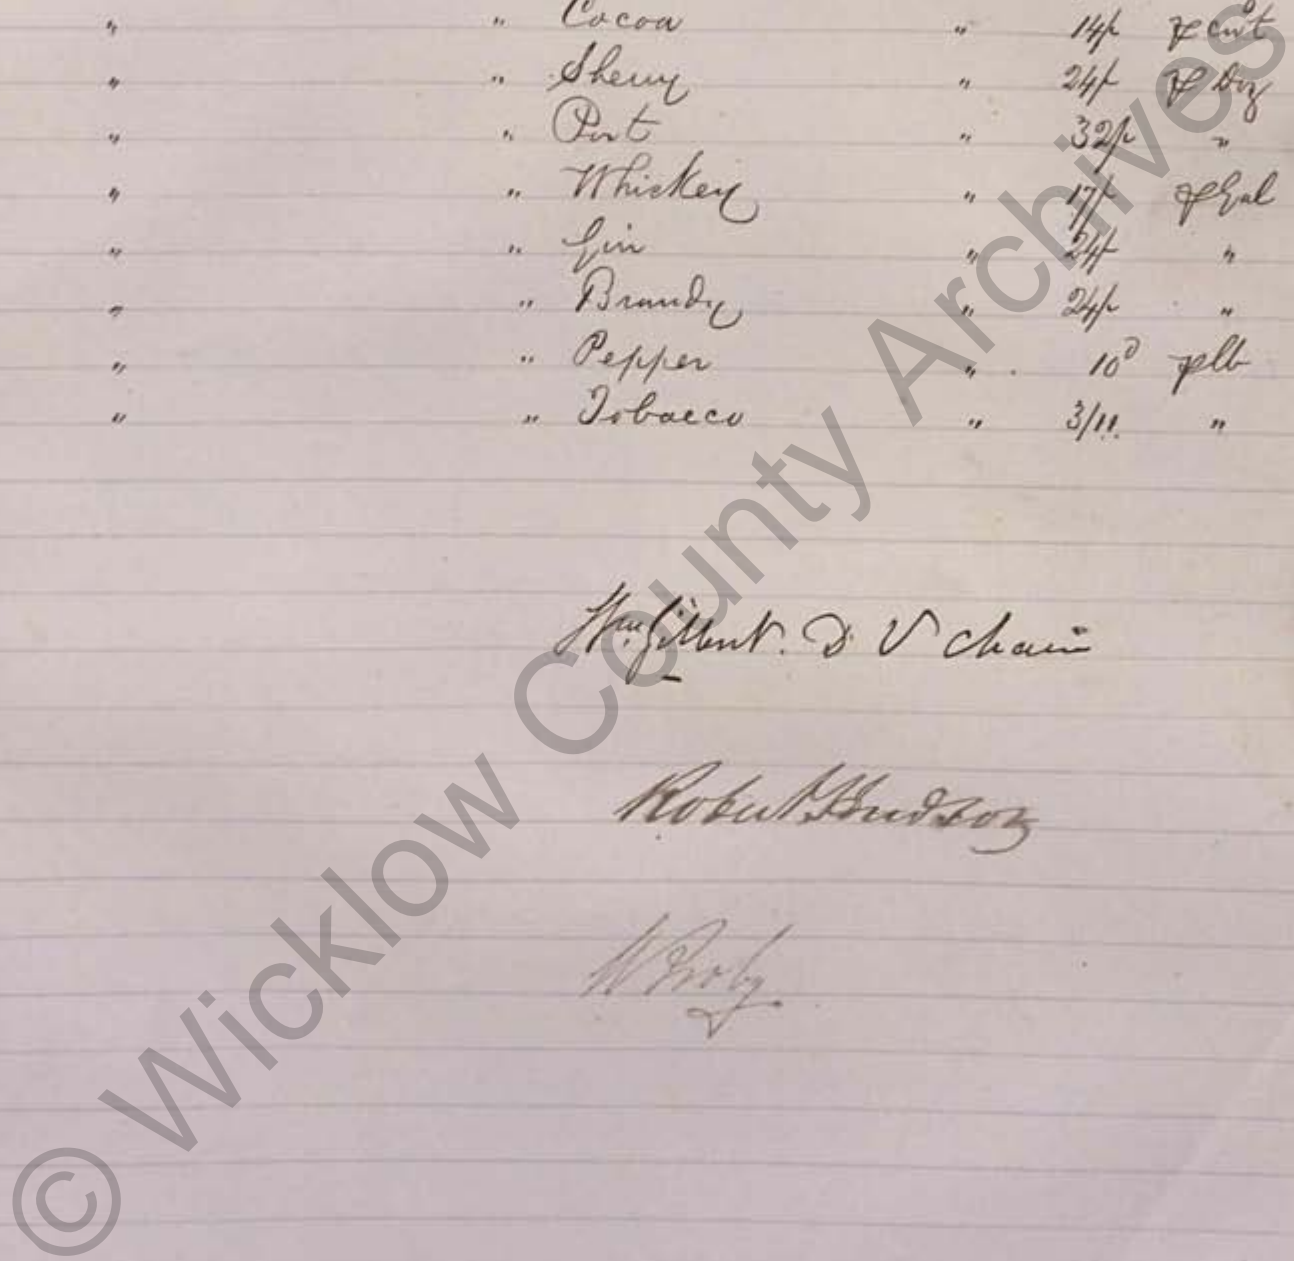 " " Cocoa " 14/- ⅌ cwt
" " Sherry " 24/- ⅌ Doz
" " Port " 32/- "
" " Whiskey " 17/- ⅌ Gal
" " Gin " 24/- "
" " Brandy " 24/- "
" " Pepper " 10d plb
" " Tobacco " 3/11. "
Wm. Gilbert. D V Chair
Robert Hudson
W Proby
© Wicklow County Archives